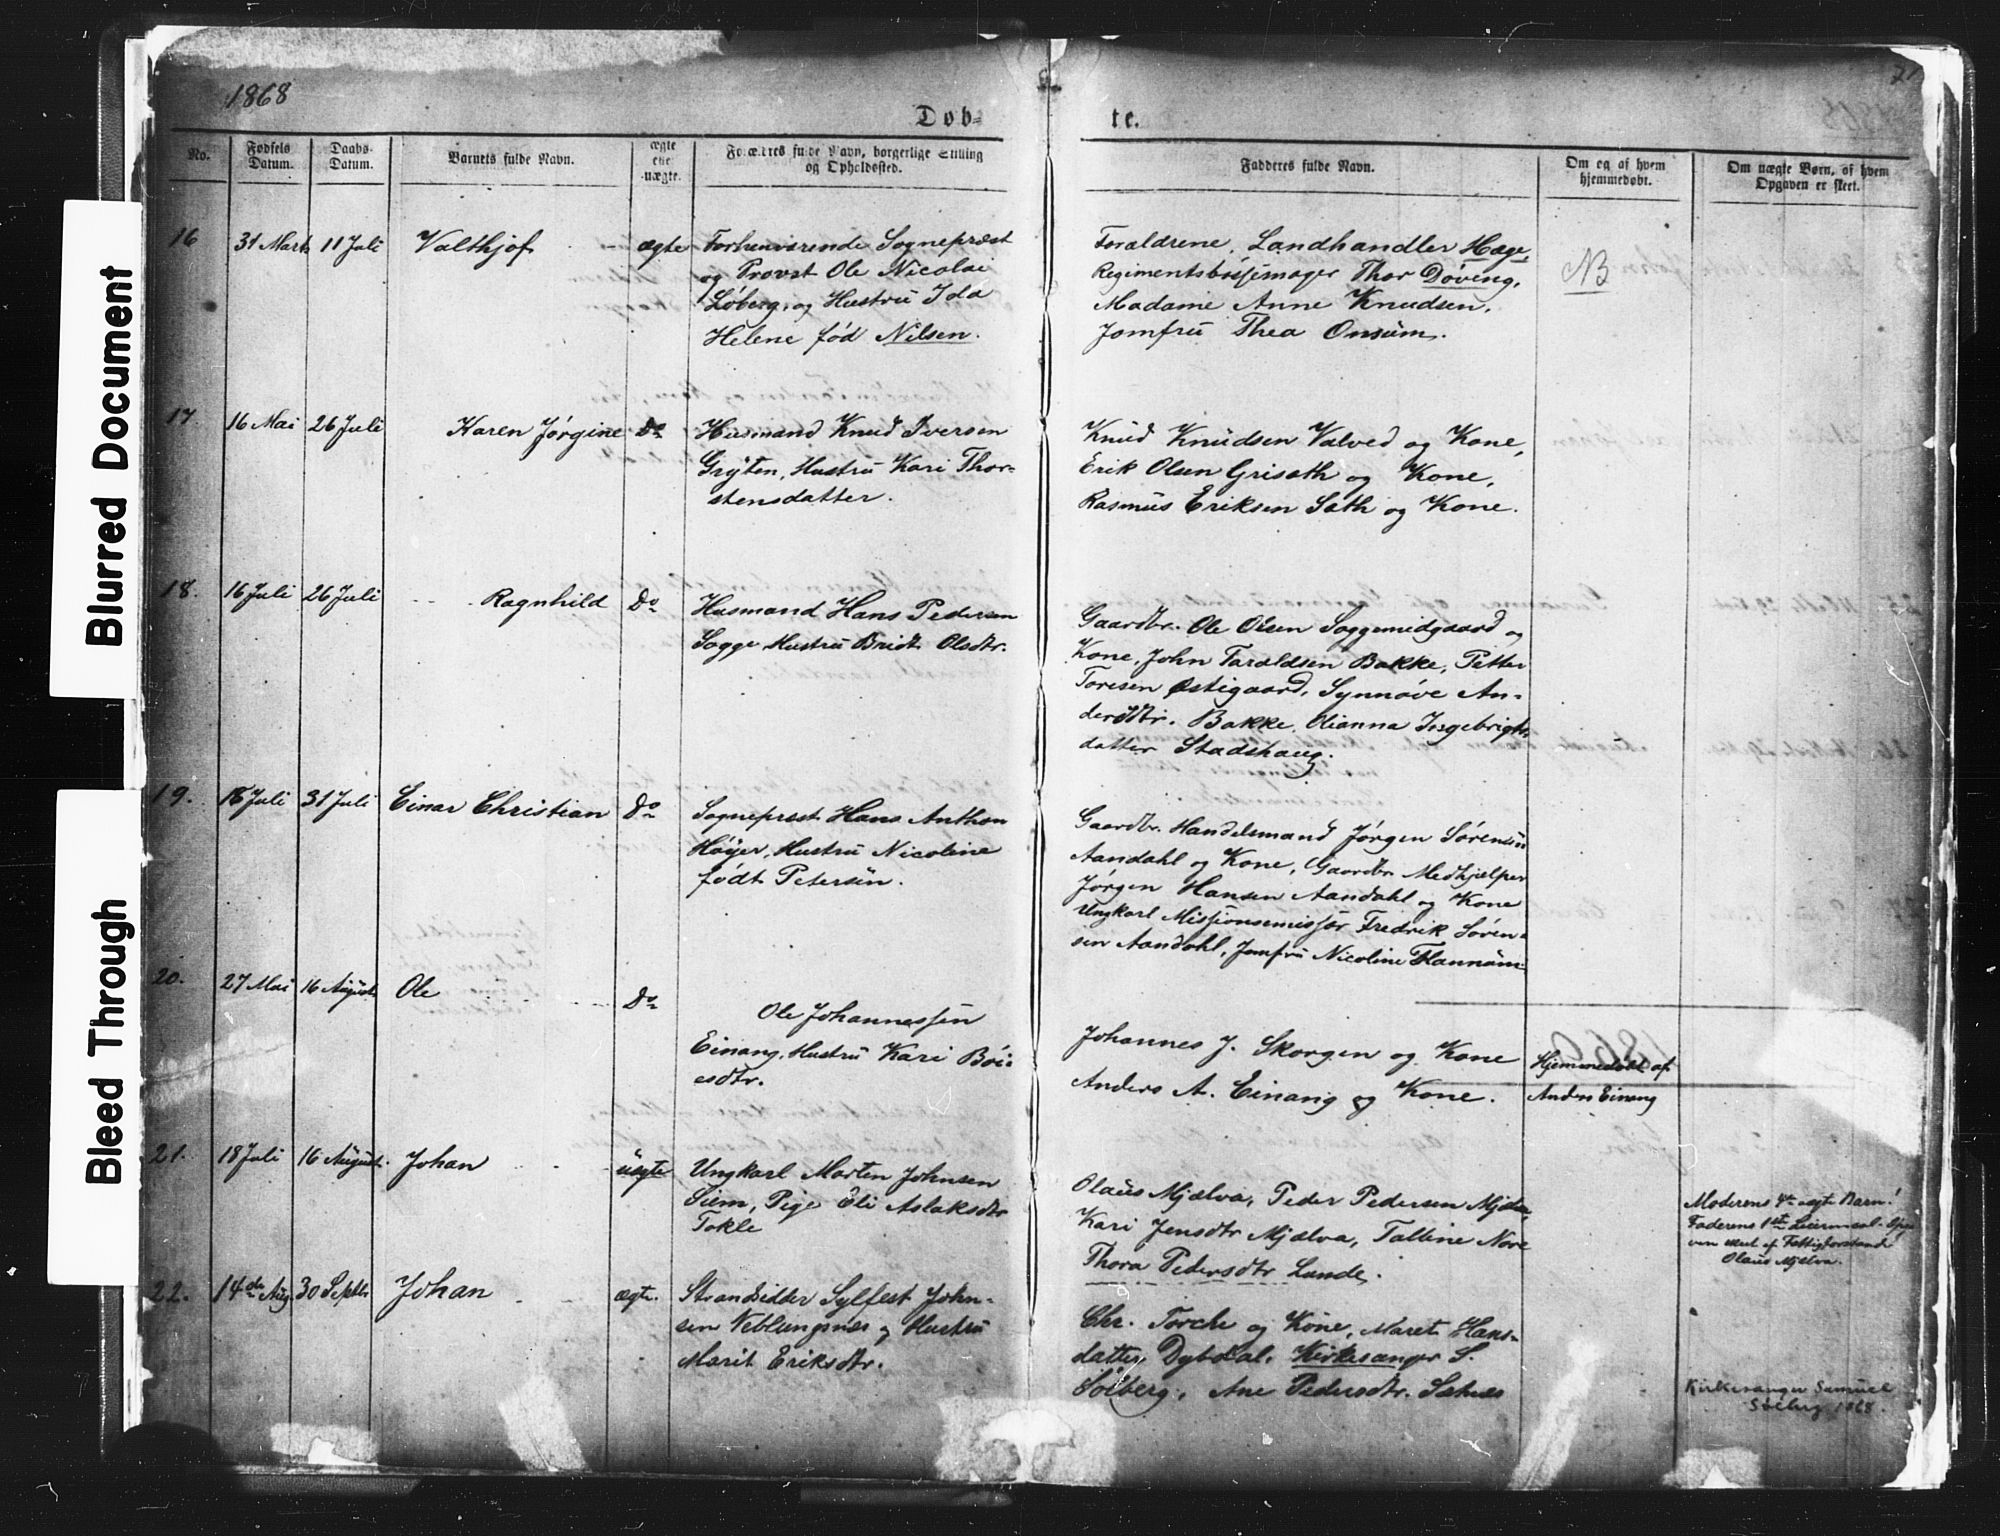 1868
Døb-
te.
No.
Fødsels
Datum.
Daabs-
Datum.
Barnets fulde Navn.
ægte
eller
uægte.
Forældres fulde Navn, borgerlige Stilling
og Opholdssted.
Fadderes fulde Navn.
Om og af hvem
hjemmedøbt.
Om uægte Børn, af hvem
Opgaven er skeet.
16 31 Marts 11 Juli Valthjof ægte
Forhenværende Sognepræst
og Provst Ole Nicolai
Løberg, og Hustru Ida
Helene fød Nilsen.
Forældrene, Landhandler Hage,
Regimentsbøssemager Thor Døving,
Madame Anne Knudsen,
Jomfru Thea Onsum.
NB
17. 16 Mai 26 Juli Karen Jørgine Do
Husmand Knud Iversen
Gryten, Hustru Kari Thor-
stensdatter.
Knud Knudsen Valved og Kone,
Erik Olsen Grisath og Kone,
Rasmus Eriksen Sath og Kone.
18. 16 Juli 26 Juli Ragnhild Do
Husmand Hans Pedersen
Sogge Hustru Bridt Olsdtr.
Gaardbr. Ole Olsen Soggemidgaard og
Kone, John Taraldsen Bakke, Petter
Toresen Østigaard, Synnøve An-
dersdtr. Bakke, Olianna Ingebrigts
datter Stadshaug.
19. 18 Juli 31 Juli Einar Christian Do
Sognepræst Hans Anthon
Høyer, Hustru Nicoline
født Petersen.
Gaardbr. Handelsmand Jørgen Sørensen
Aandahl og Kone, Gaardbr Medhjælper
Jørgen Hansen Aandahl og Kone
Ungkarl Missionsemissær Fredrik Søren-
sen Aandahl, Jomfru Nicoline
20. 27 Mai 16 August Ole Do
Ole Johannessen
Einang, Hustru Kari Boi-
esdtr.
Johannes J. Skorgen og Kone
Anders A. Einang og Kone.
Hjemmedøbt af
Anders Einang
21. 18 Juli 16 August. Johan uægte
Ungkarl Morten Johnsen
Siem, Pige Eli Aslaksdtr
Tokle
Olaus Mjælva, Peder Pedersen Mjælva,
Kari Jensdtr Mjælva, Talline Nore
Thora Pedersdtr Lunde.
Moderens 4de uægte Barn!
Faderens 1ste Leiermaal. Opga
ven skeet af Fattigforstand
Olaus Mjelva.
22. 14de Aug. 30 Septbr Johan ægte.
Strandsidder Sylfest John-
sen Veblungsnæs og Hustru
Marit Eriksdtr.
Chr. Torche og Kone, Maret Hans-
datter Dybdal, Kirkesanger S.
Solberg, Ane Pedersdtr. Sætnes
Kirkesanger Samuel
Solberg 1868.
Blurred Document
Bleed Through